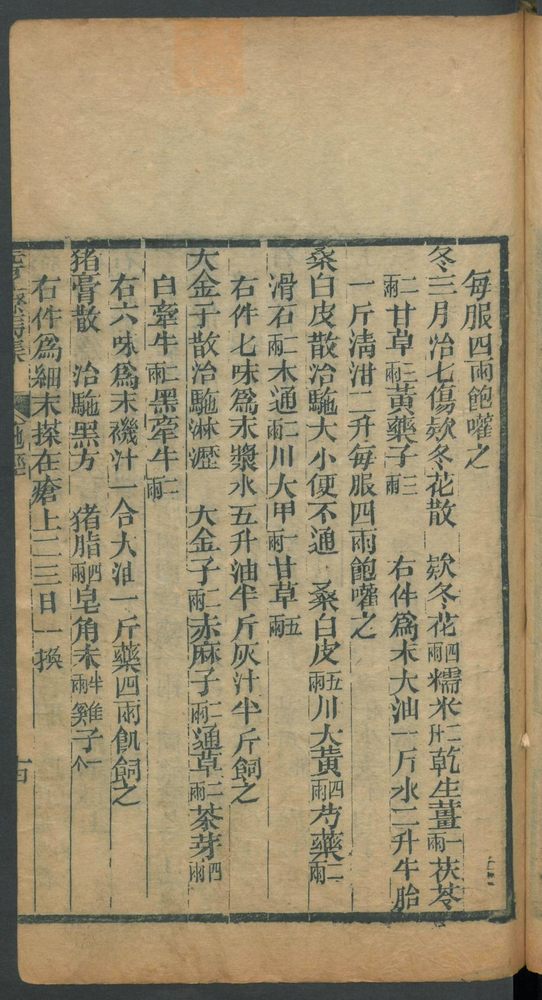 每服四兩飽嚾之
冬三月冶七傷欵冬花散　欵冬花四兩糯米二升乾生薑一兩茯苓
二兩甘草二兩黃藥子三兩　右件爲末大油一斤水二升牛胎
一斤淸泔二升每服四兩飽嚾之
桑白皮散治駞大小便不通　桑白皮五兩川大黃四兩芍藥二兩
滑石二兩木通二兩川大甲一兩甘草五兩
右件七味爲末漿水五升油半斤灰汁半斤飼之
大金子散治駞淋瀝　大金子二兩赤麻子二兩通草二兩茶芽四兩
白牽牛二兩黑牽牛二兩
右六味爲末禨汁一合大油一斤藥四兩飢飼之
猪膏散　治駞黑方　猪脂四兩皂角末半兩雞子一个
右件爲細末搽在瘡上二三日一換